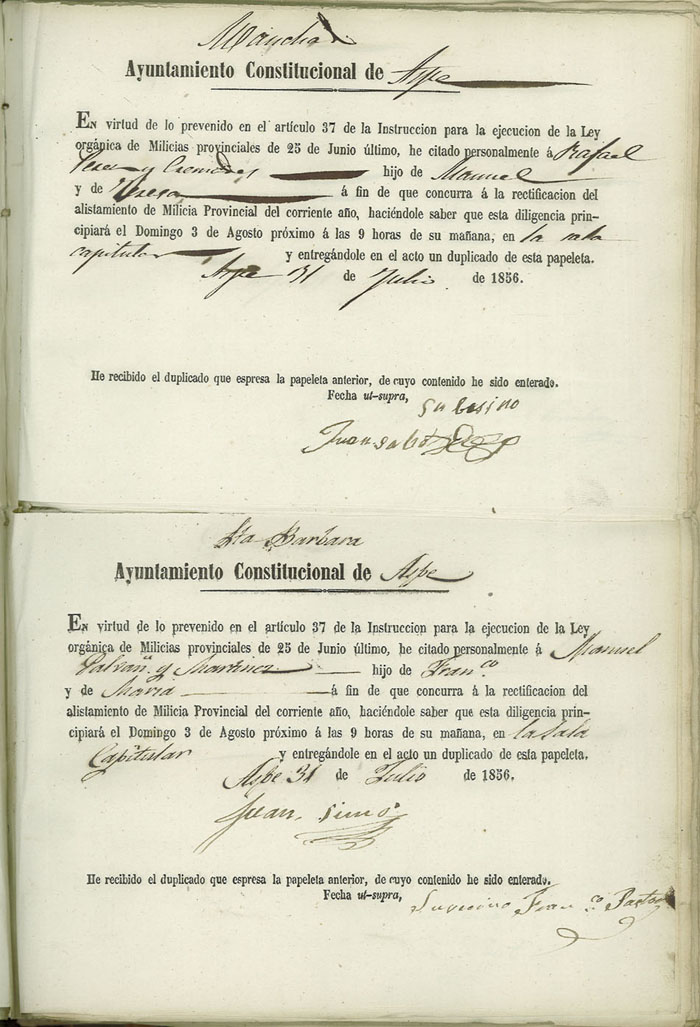 Mancha
Ayuntamiento Constitucional de Aspe
En virtud de lo prevenido en el artículo 37 de la Instruccion para la ejecucion de la Ley
orgánica de Milicias provinciales de 25 de Junio último, he citado personalmente á Rafael
y Cremades hijo de Manuel
y de Teresa á fin de que concurra á la rectificacion del
alistamiento de Milicia Provincial del corriente año, haciéndole saber que esta diligencia prin-
cipiará el Domingo 3 de Agosto próximo á las 9 horas de su mañana, en la sala
capitular y entregándole en el acto un duplicado de esta papeleta.
Aspe 31 de Julio de 1856.
He recibido el duplicado que espresa la papeleta anterior, de cuyo contenido he sido enterado.
Fecha ut-supra,
Su besino
Juan
Sta Barbara
Ayuntamiento Constitucional de Aspe
En virtud de lo prevenido en el artículo 37 de la Instruccion para la ejecucion de la Ley
orgánica de Milicias provinciales de 25 de Junio último, he citado personalmente á Manuel
Galvañ y Martinez hijo de Franco
y de Maria á fin de que concurra á la rectificacion del
alistamiento de Milicia Provincial del corriente año, haciéndole saber que esta diligencia prin-
cipiará el Domingo 3 de Agosto próximo á las 9 horas de su mañana, en la Sala
Capitular y entregándole en el acto un duplicado de esta papeleta.
Aspe 31 de Julio de 1856.
Juan Simó
He recibido el duplicado que espresa la papeleta anterior, de cuyo contenido he sido enterado.
Fecha ut-supra,
Su vecino Franco Pastor